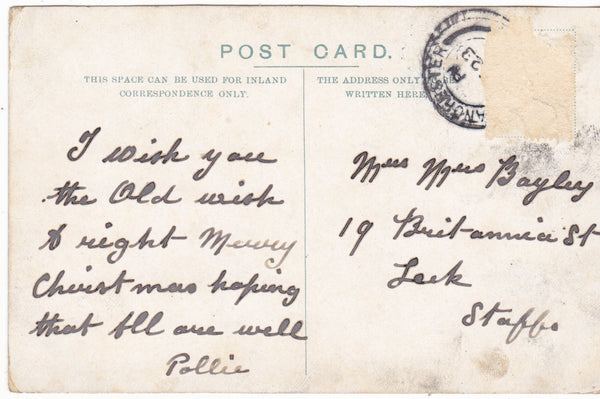 POST CARD.
THIS SPACE CAN BE USED FOR INLAND
CORRESPONDENCE ONLY.
THE ADDRESS ONLY
WRITTEN HERE
ANCHESTER
PM
23
I wish you
the Old wish
A right Merry
Christmas hoping
that All are well
Pollie
Bayley
19 Britannia St
Leek
Staffs